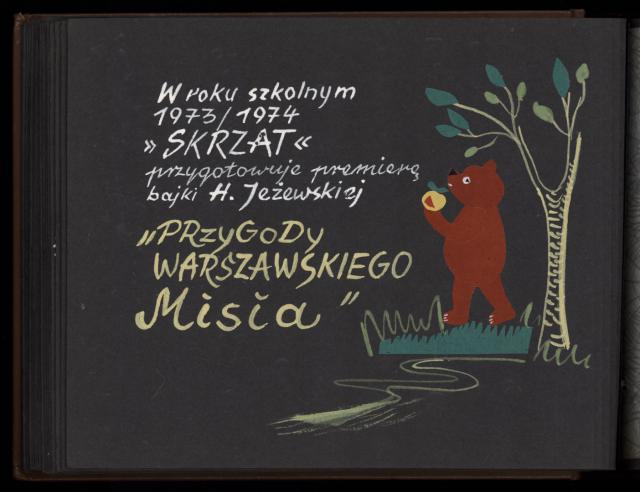 W roku szkolnym
1973/1974
»SKRZAT«
przygotowuje premierę
bajki H. Jeżewskiej
„PRzyGoDy
WARSZAWSKIEGO
Misia”